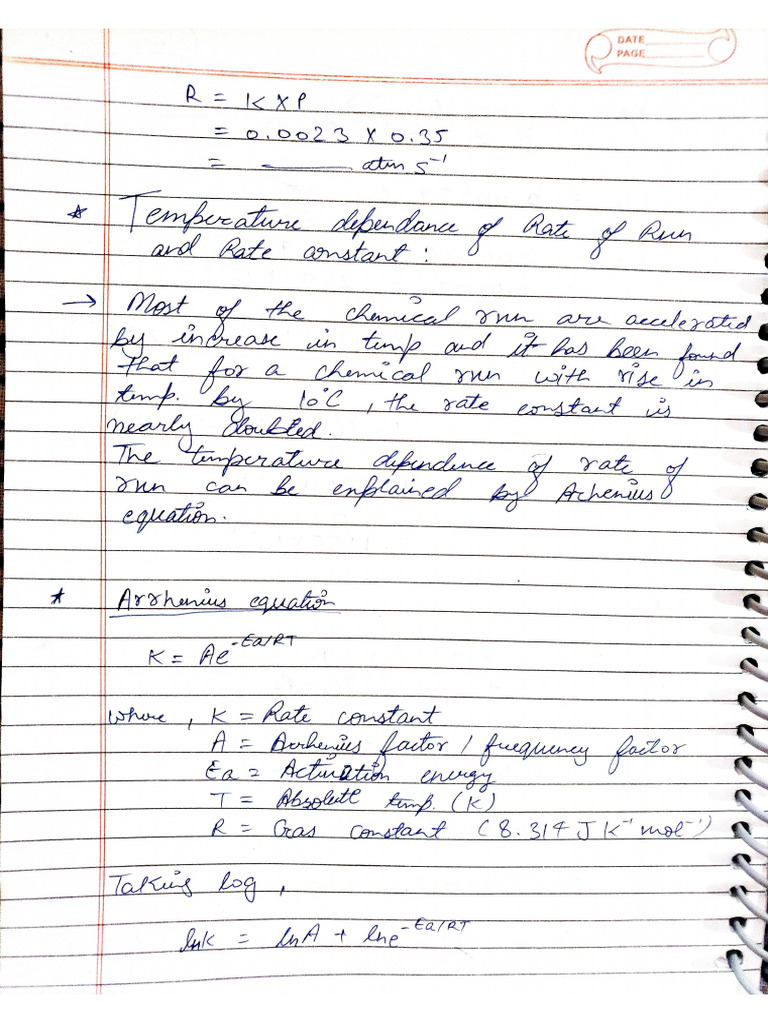 DATE
PAGE
R = K X P
= 0.0023 X 0.35
= ______ atm s⁻¹
* Temperature dependance of Rate of Rxn
and Rate constant :
→ Most of the chemical rxn are accelerated
by increase in temp and it has been found
that for a chemical rxn with rise in
temp. by 10°C, the rate constant is
nearly doubled.
The temperature dependence of rate of
rxn can be explained by Arhenius
equation.
* Arrhenius equation
K = Ae^-Ea/RT
where, K = Rate constant
A = Arrhenius factor / frequency factor
Ea = Activation energy
T = Absolute temp. (K)
R = Gas constant (8.314 J K⁻¹ mol⁻¹)
Taking log,
lnK = lnA + lne^-Ea/RT